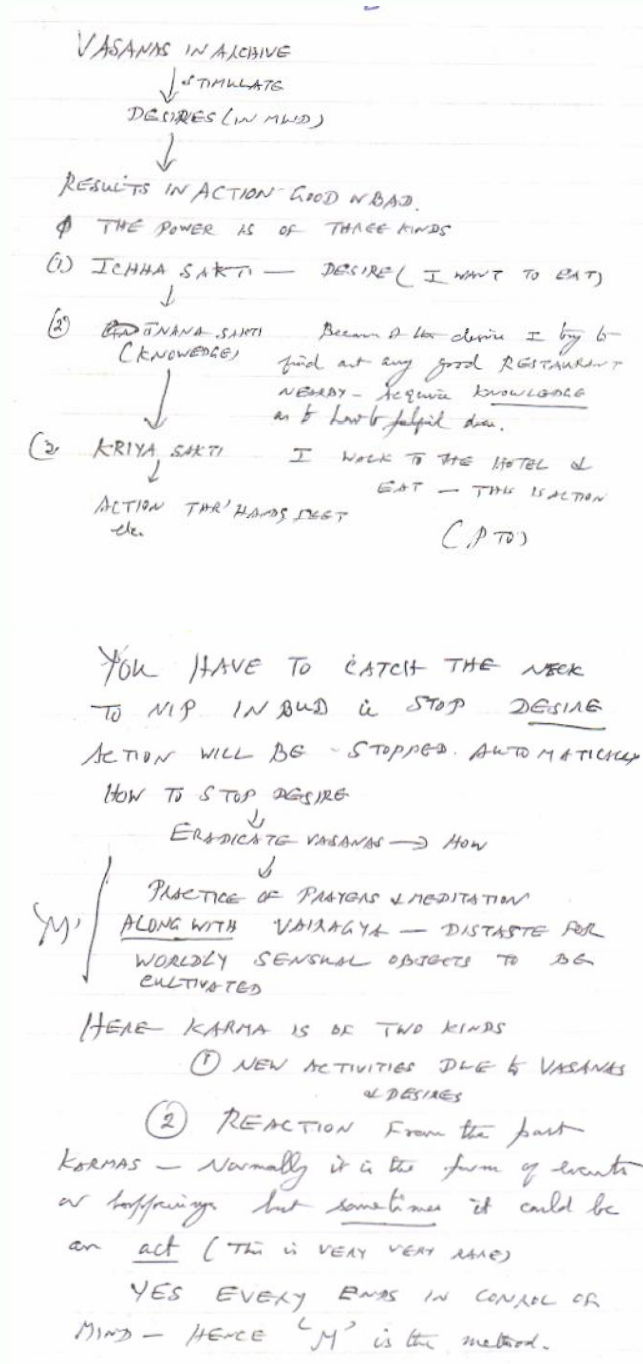 VASANAS IN ARCHIVE
↓ STIMULATE
DESIRES (IN MIND)
↓
RESULTS IN ACTION GOOD OR BAD.
THE POWER IS OF THREE KINDS
(1) ICHHA SAKTI — DESIRE ( I WANT TO EAT)
↓
(2) JNANA SAKTI Because of the desire I try to
(KNOWEDGE) find out any good RESTAURANT
NEARBY — Acquire KNOWLEDGE
↓ as to how to fulfil desire.
(3 KRIYA SAKTI I WALK TO THE HOTEL &
↓ EAT — THIS IS ACTION
ACTION THR' HANDS FEET
etc. (PTO)
YOU HAVE TO CATCH THE NECK
TO NIP IN BUD ie STOP DESIRE
ACTION WILL BE STOPPED. AUTOMATICALLY
HOW TO STOP DESIRE
↓
ERADICATE VASANAS → HOW
↓
PRACTICE OF PRAYERS & MEDITATION
'M' ALONG WITH VAIRAGYA — DISTASTE FOR
WORLDLY SENSUAL OBJECTS TO BE
CULTIVATED
HERE KARMA IS OF TWO KINDS
(1) NEW ACTIVITIES DUE to VASANAS
& DESIRES
(2) REACTION From the past
KARMAS — Normally it is the form of events
or happenings but sometimes it could be
an act (This is VERY VERY RARE)
YES EVERY ENDS IN CONROL OF
MIND — HENCE 'M' is the method.